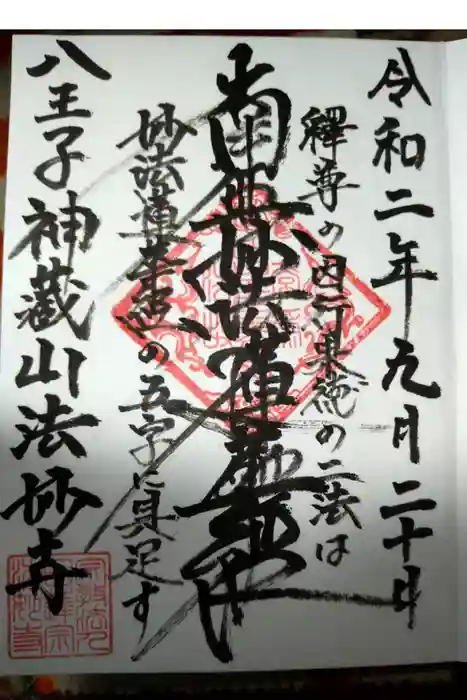 令和二年元月二十日
釋尊の因行果徳の二法は
南無妙法蓮華経
妙法蓮華経の五字に具足す
八王子神蔵山法妙寺